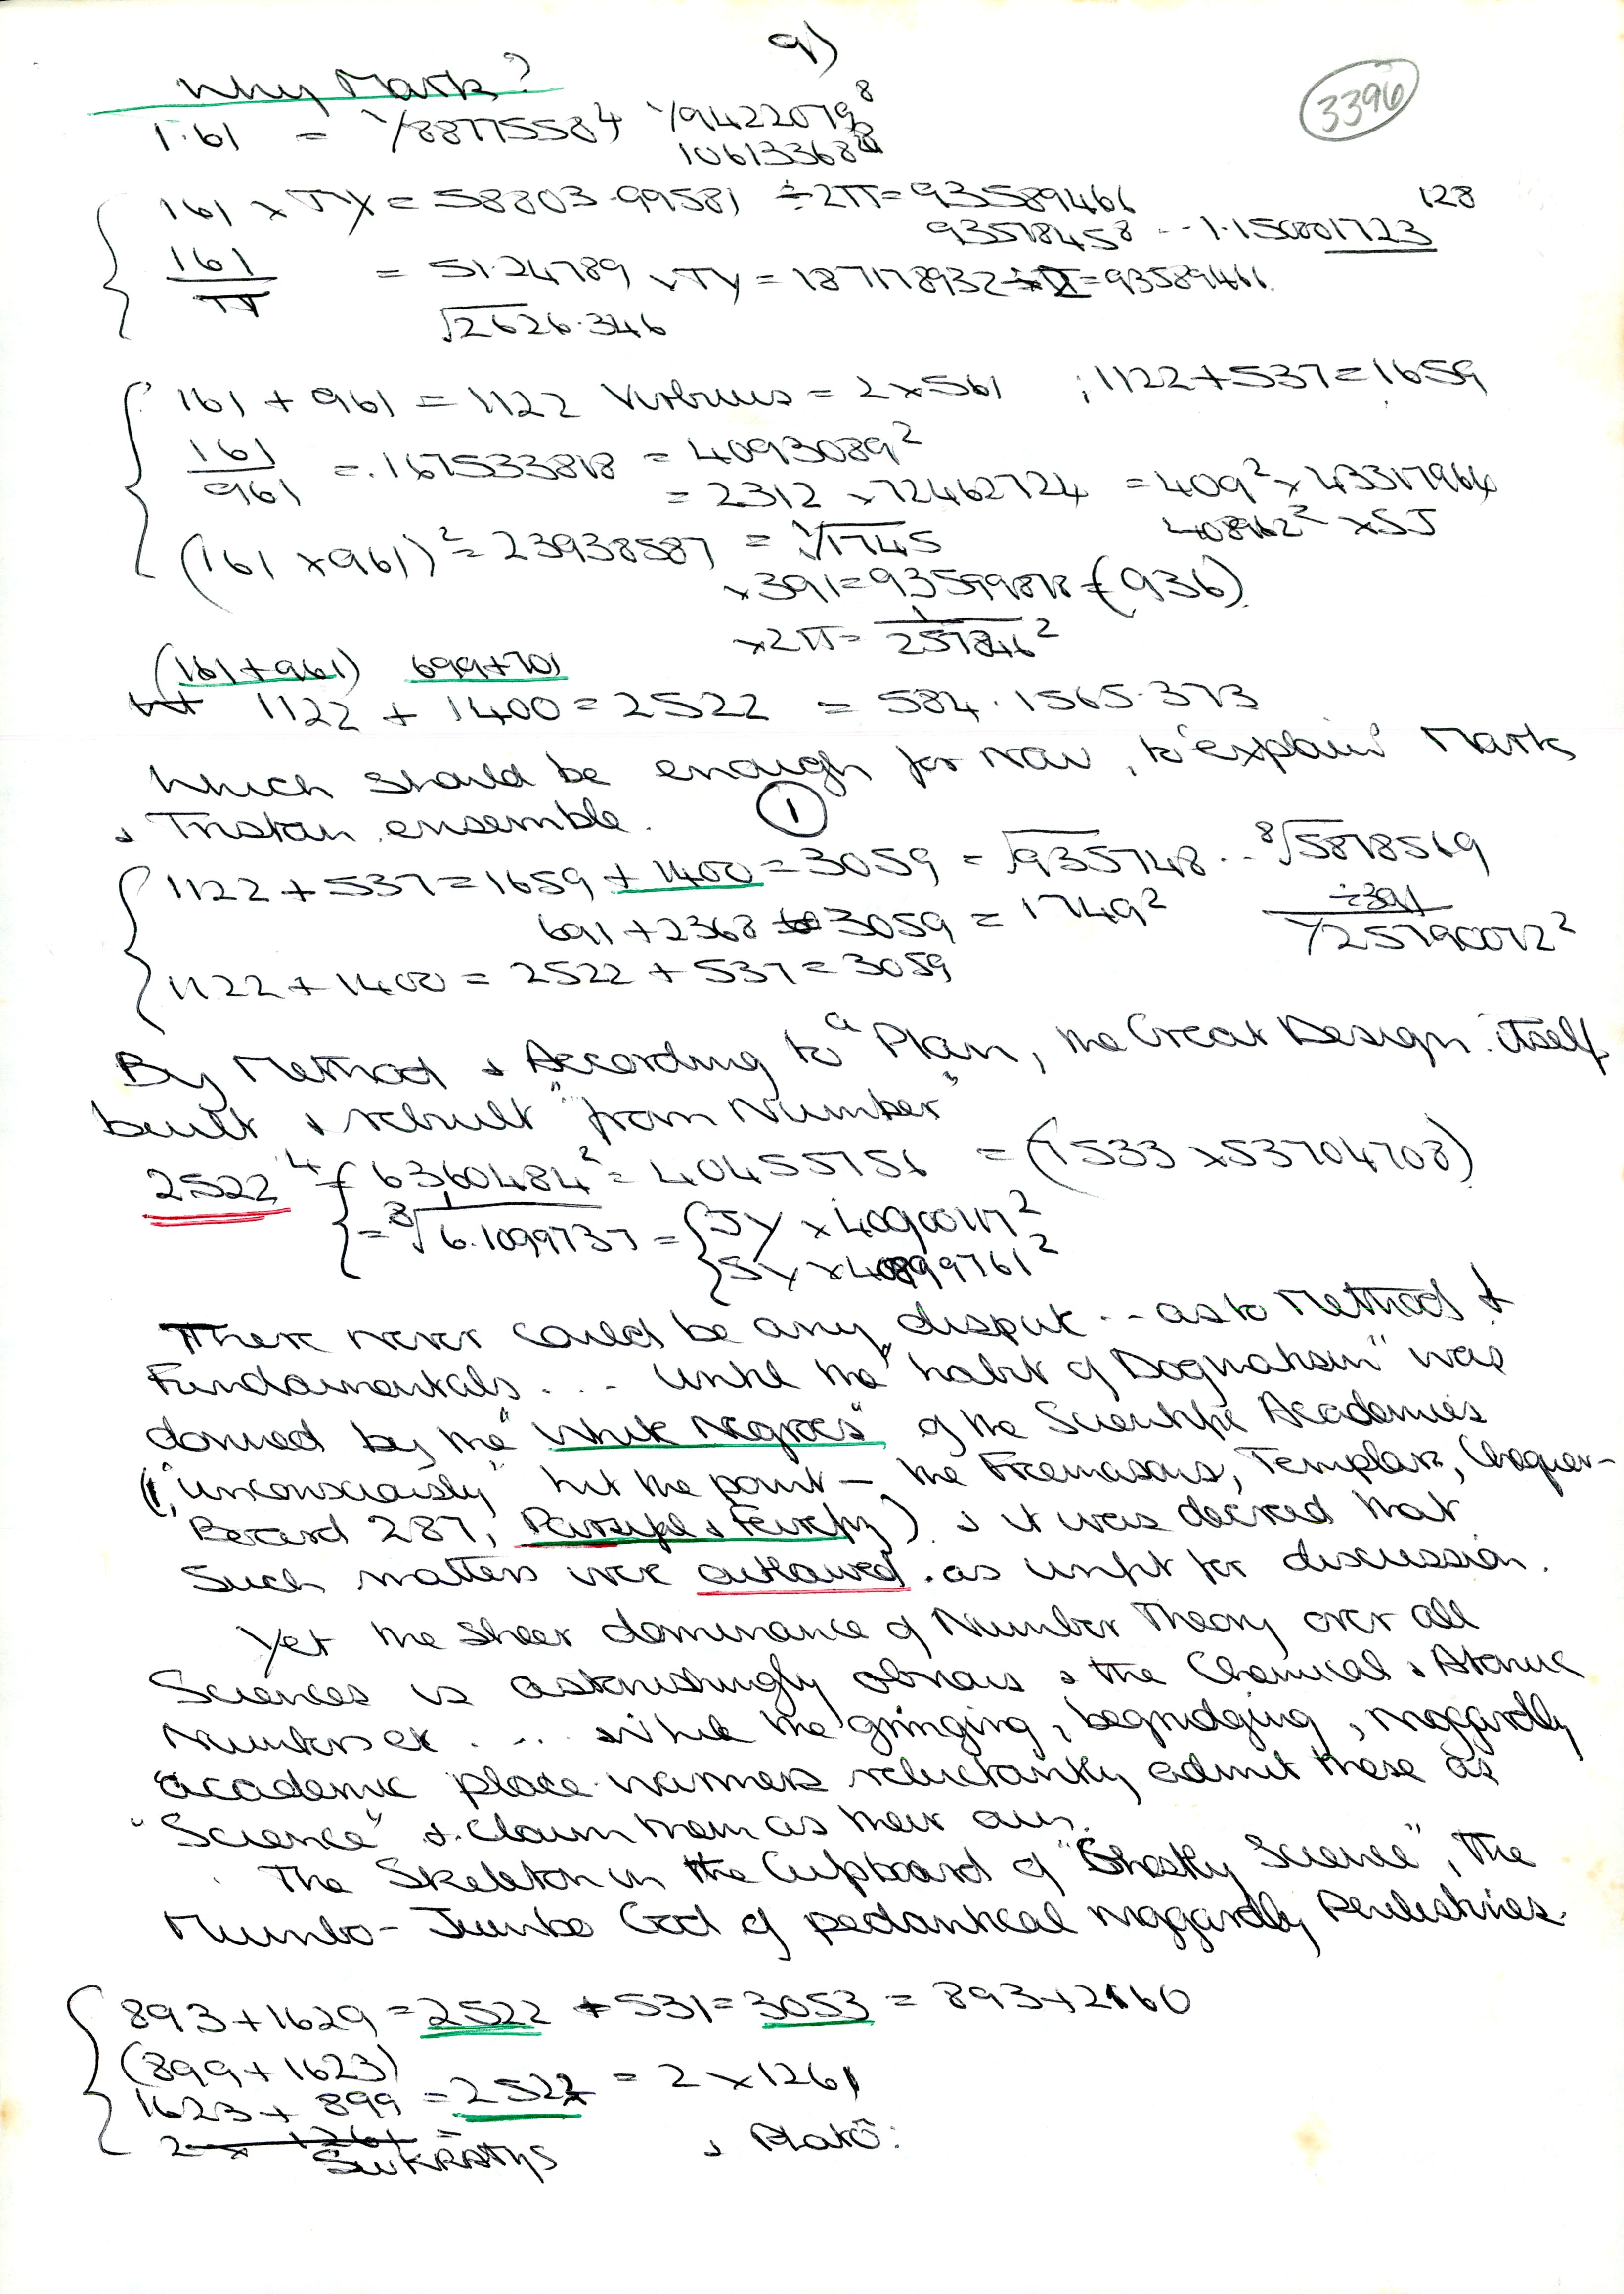 9)
3396
Why Mark?
1.61 = 1/88775584 1/9422079⁸
10613368⁸
161 x TY = 58803.99581 ÷ 2π = 93589461 128
93578458 -- 1.150801723
161/π = 51.24789 x TY = 187178932 ÷ 2 = 93589461.
√2626.346
161 + 961 = 1122 Virbius = 2 x 561 ; 1122 + 537 = 1659
161/961 = .167533818 = 4093089²
= 2312 x 72462724 = 409² x
408962² x SJ
(161 x 961)² = 23938587 = 1/√1745
x 391 = 93599878 (936)
x 2π = 1/257846²
(161+961) 699+701
1122 + 1400 = 2522 = 584.1565.373
Which should be enough for now, to "explain" Mark
& Tristan ensemble. ①
1122 + 537 = 1659 + 1400 = 3059 = √935748.. ⁸√5878569
÷391
691 + 2368 3059 = 1749² 1/25790072²
1122 + 1400 = 2522 + 537 = 3059
By Method & According to a Plan, the Great Design itself
built & rebuilt "from Number"
2522⁴ = 6360484² = 40455756 = (1533 x 53704708)
= ³√6.1099737 = JY x 40900117²
SY x 40899761²
There never could be any dispute -- as to Method &
Fundamentals . . . . Until the "habit of Dogmatism" was
donned by the "White Negroes" of the Scientific Academies
("unconsciously" hit the point — the Freemasons, Templars, Chequer-
Becard 287, Parsyfal & Feirefiz) & it was decreed that
Such matters were outlawed. as unfit for discussion.
Yet the sheer dominance of Number Theory over all
Sciences is astonishingly obvious & the Chemical & Atomic
Numbers etc . . . . while the gringing, begrudging, niggardly
academic place-warmers reluctantly admit these as
"Science" & claim them as their own.
The Skeleton in the Cupboard of "Ghostly Science", the
Mumbo-Jumbo God of pedantical niggardly
893 + 1629 = 2522 + 531 = 3053 = 893 + 2160
(899 + 1623)
1623 + 899 = 2522 = 2 x 1261
2 x 1261 =
SwKRATHS & Platō: